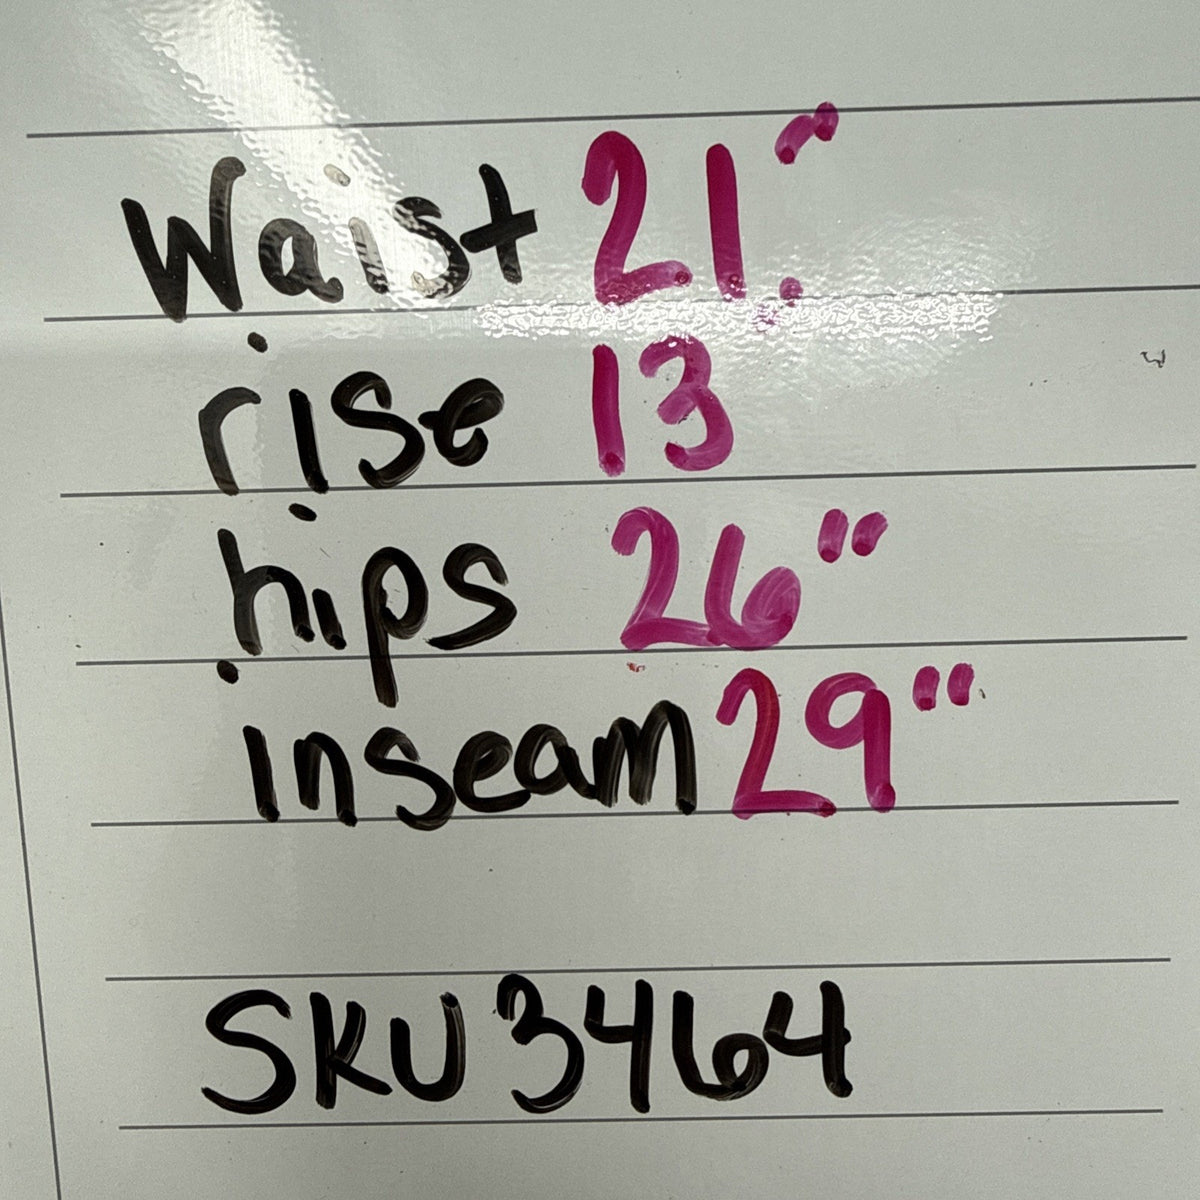 Waist 21"
rise 13
hips 26"
inseam 29"
SKU 3464